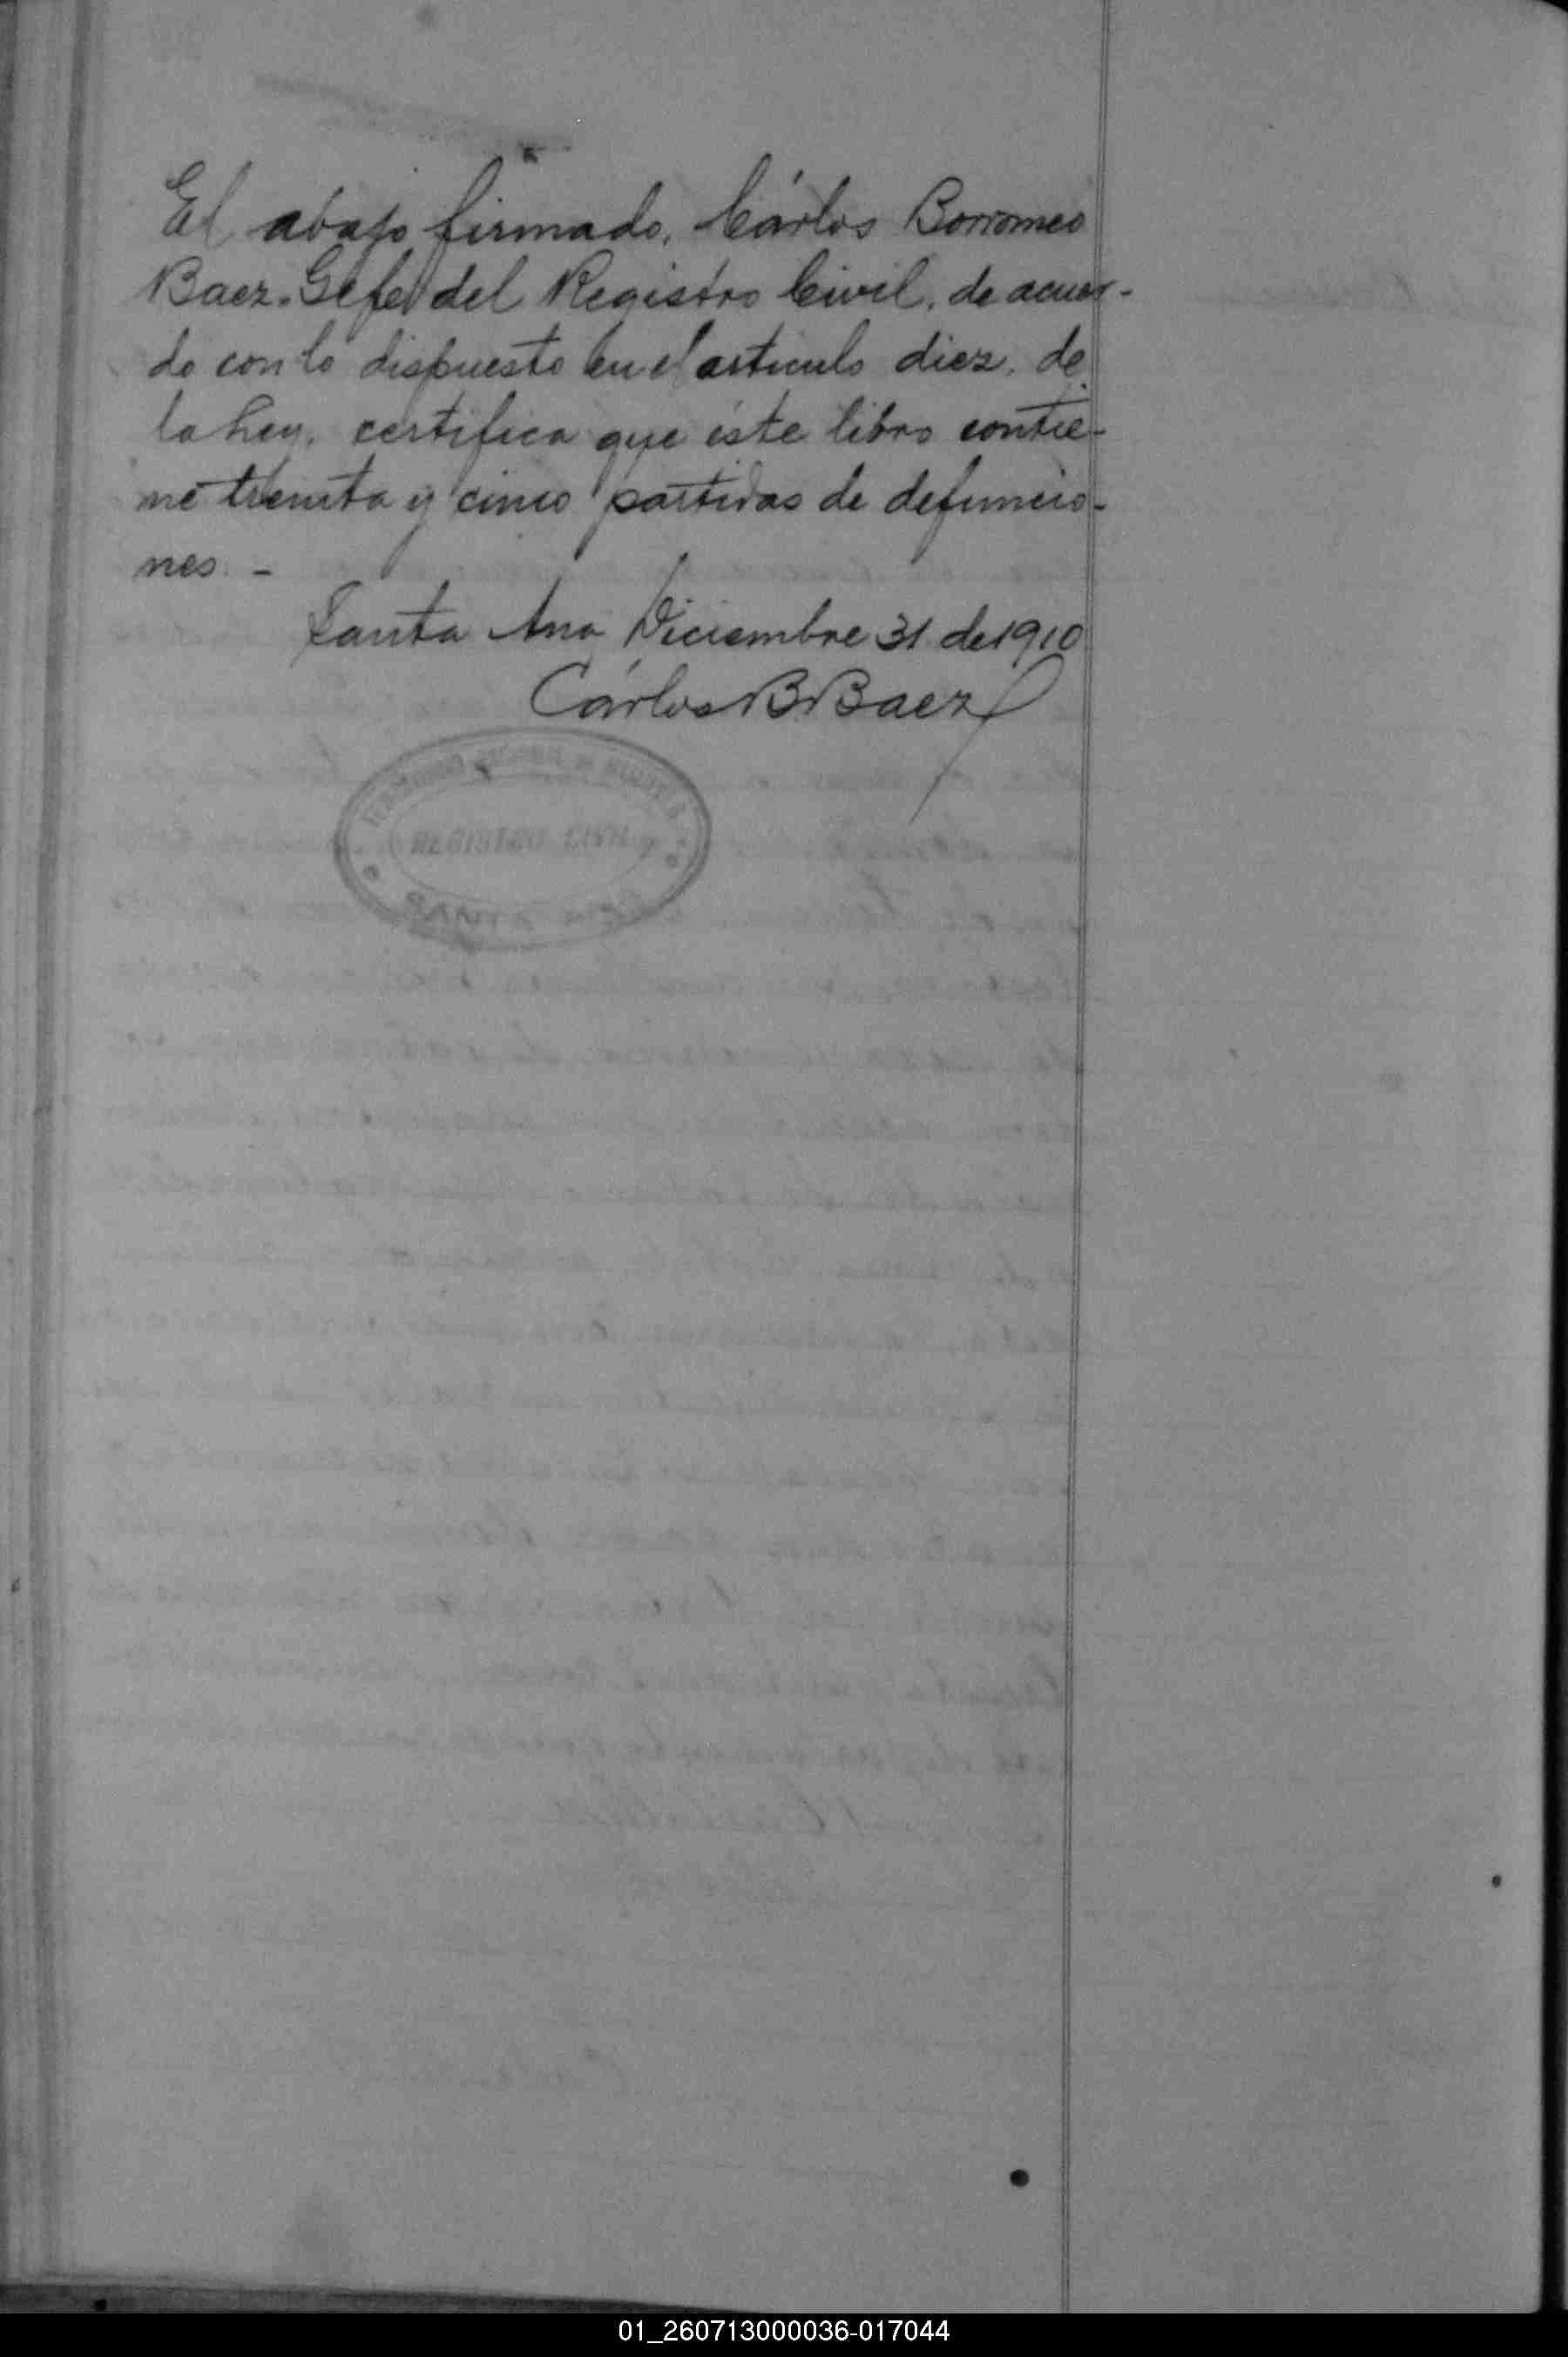 El abajo firmado, Cárlos Borromeo
Baez. Gefe del Registro Civil, de acuer-
do con lo dispuesto en el articulo diez, de
la Ley, certifica que éste libro contie-
ne treinta y cinco partidas de defuncio-
nes. -
Santa Ana Diciembre 31 de 1910
Cárlos B Baez
REGISTRO CIVIL
SANTA ANA
01_260713000036-017044